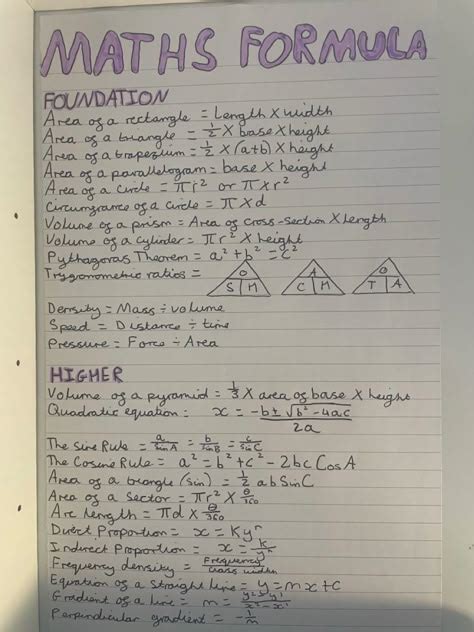 MATHS FORMULA
FOUNDATION
Area of a rectangle = Length X width
Area of a triangle = 1/2 X base X height
Area of a trapezium = 1/2 X (a+b) X height
Area of a parallelogram = base X height
Area of a circle = πr² or π X r²
Circumfrance of a circle = π X d
Volume of a prism = Area of cross-section X length
Volume of a cylinder = πr² X height
Pythagoras Theorem = a² + b² = c²
Trygonometric ratios = O S H A C H O T A
Density = Mass ÷ volume
Speed = Distance ÷ time
Pressure = Force ÷ Area
HIGHER
Volume of a pyramid = 1/3 X area of base X height
Quadratic equation = x = -b ± √b² - 4ac / 2a
The Sine Rule = a/sinA = b/sinB = c/sinC
The Cosine Rule = a² = b² + c² - 2bc CosA
Area of a triangle (sin) = 1/2 ab SinC
Area of a Sector = πr² X θ/360
Arc length = πd X θ/360
Direct Proportion = x = Kyⁿ
Indirect Proportion = x = k/yⁿ
Frequency density = Frequency/class width
Equation of a straight line = y = mx + c
Gradient of a line = m = y² - y¹/x² - x¹
Perpendicular gradient = -1/m